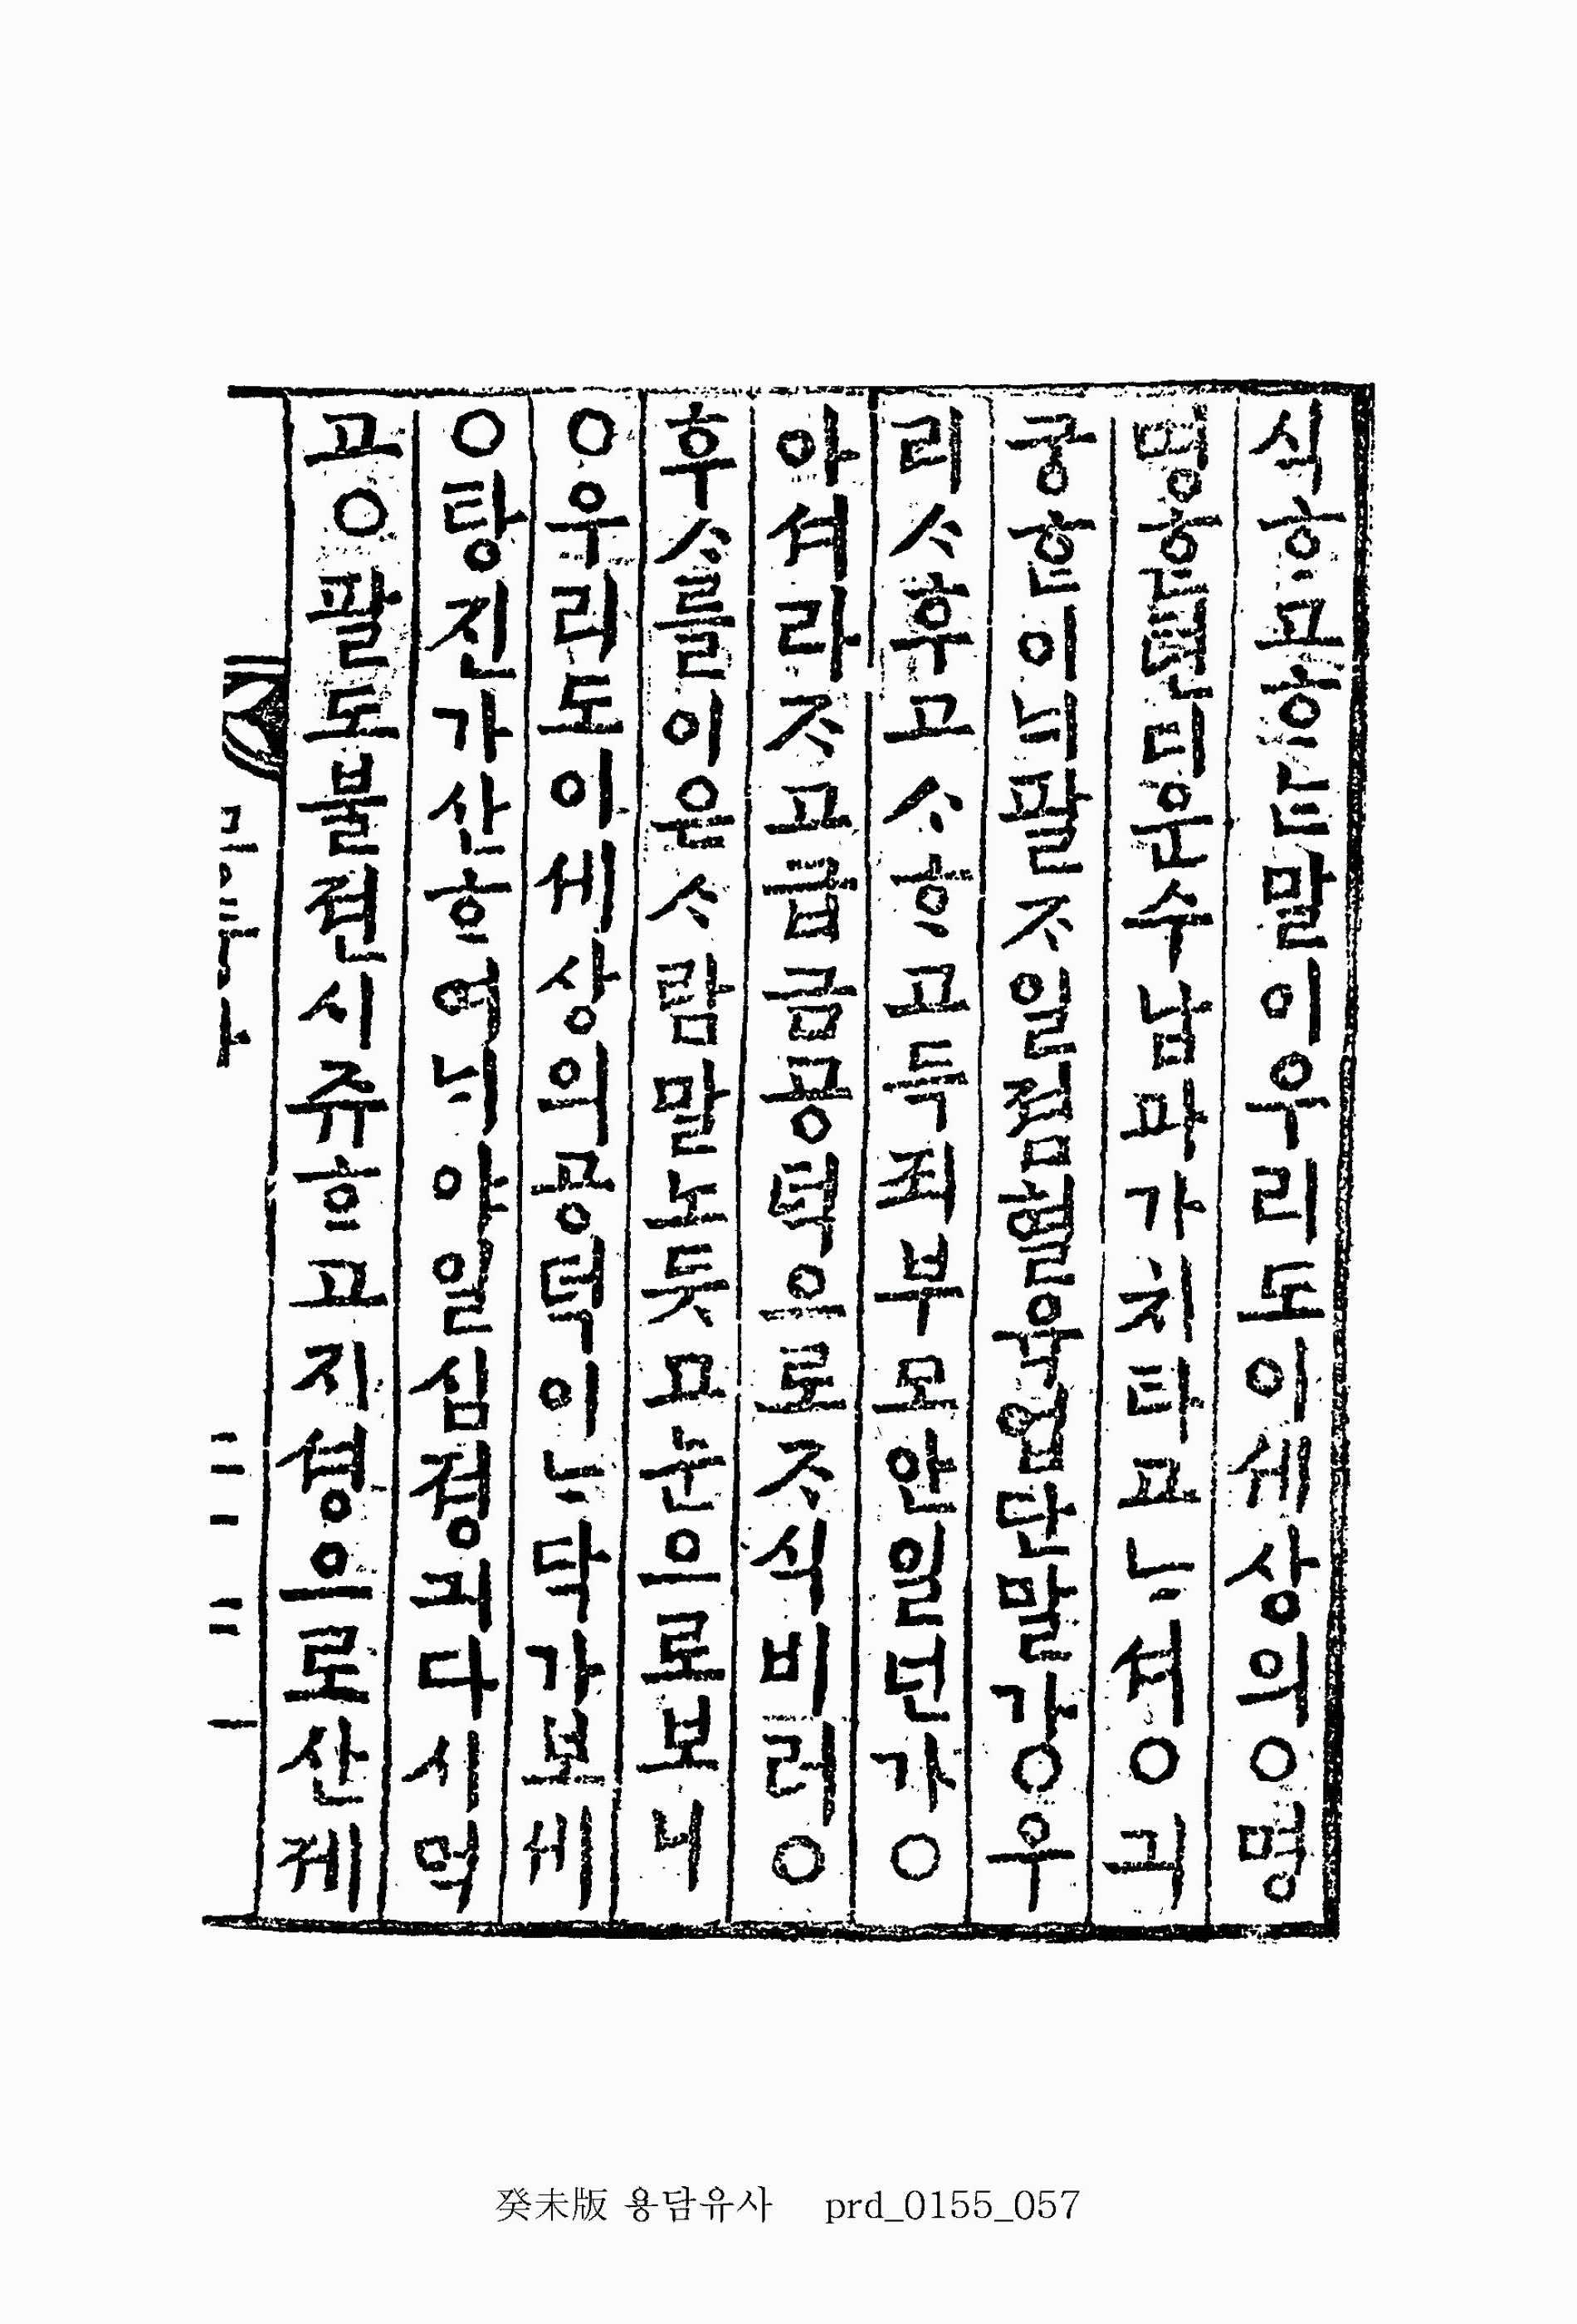 식ᄒᆞ고ᄒᆞᄂᆞᆫ말이우리도이세상의○명
명ᄒᆞᆫ텬디운수남과가치타고ᄂᆞ셔○긔
궁ᄒᆞᆫ이ᄂᆡ팔ᄌᆞ일졈혈육업단말가○우
리ᄉᆞ후고ᄉᆞᄒᆞ고득죄부모안일넌가○
아셔라ᄌᆞ고급금공덕으로ᄌᆞ식비러○
후ᄉᆞ를이은ᄉᆞ람말노듯고눈으로보니
○우리도이세상의공덕이ᄂᆞ닥가보세
○탕진가산ᄒᆞ여ᄂᆡ야일심졍긔다시먹
고○팔도불젼시쥬ᄒᆞ고지셩으로산졔
癸未版 용담유사 prd_0155_057